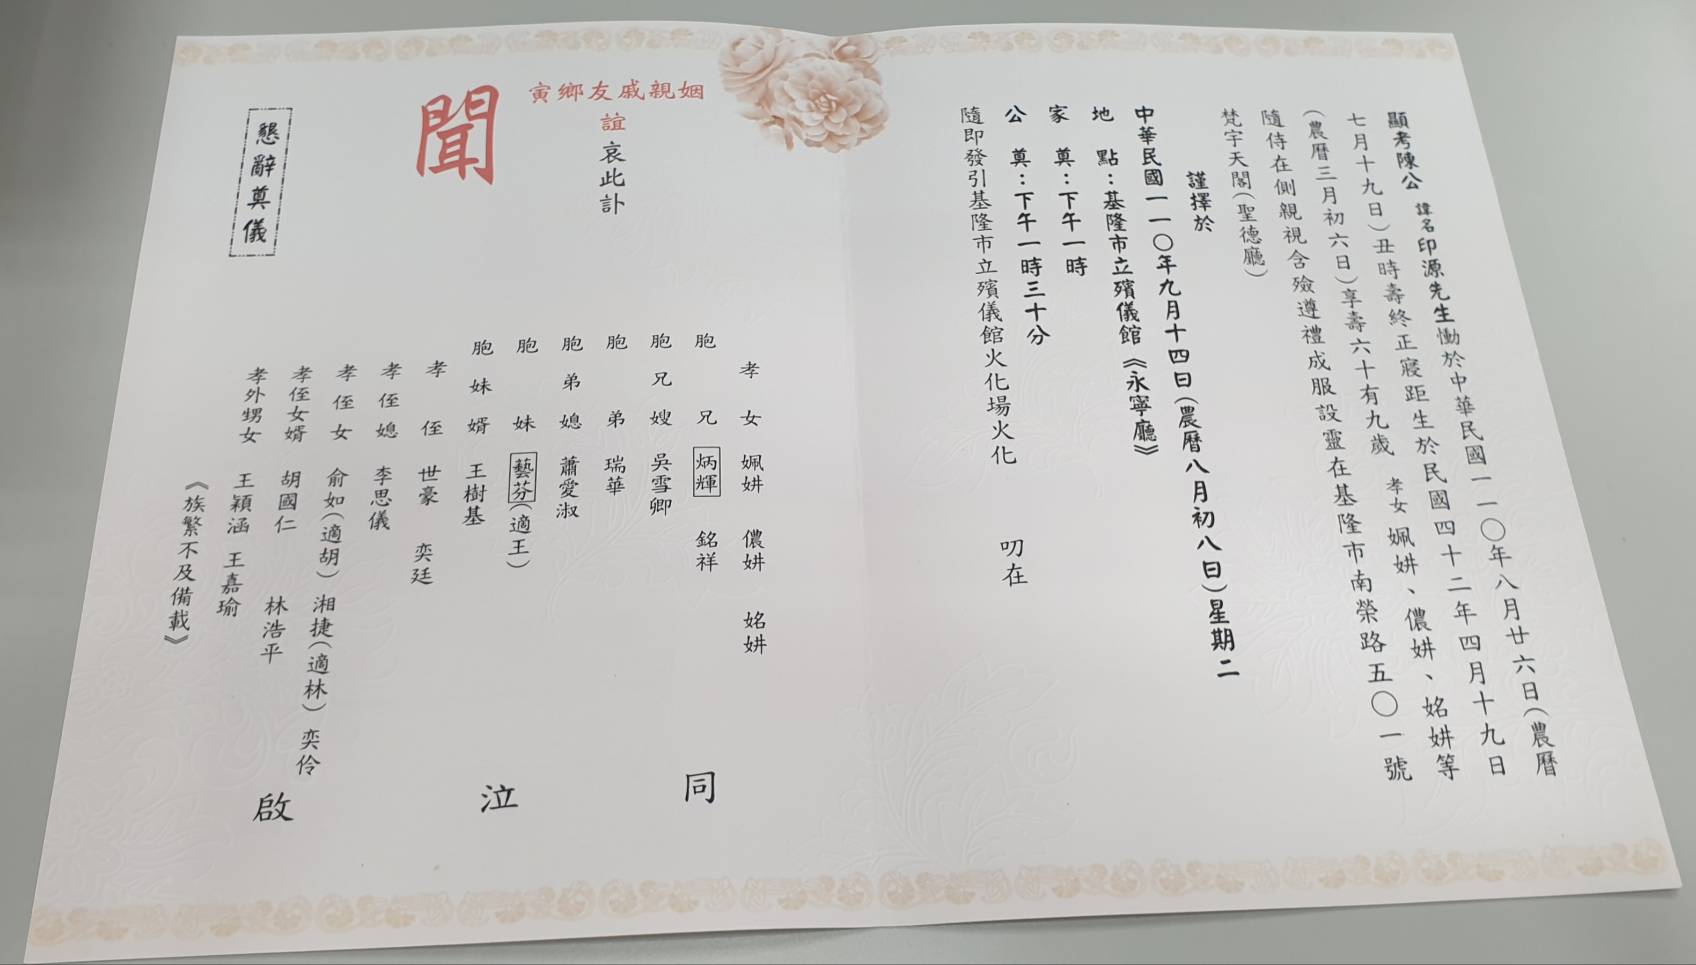 顯考陳公諱名印源先生慟於中華民國一一〇年八月廿六日(農曆
七月十九日)丑時壽終正寢距生於民國四十二年四月十九日
(農曆三月初六日)享壽六十有九歲 孝女 姵妌、儂妌、姳妌等
隨侍在側親視含殮遵禮成服設靈在基隆市南榮路五〇一號
梵宇天閣(聖德廳)
謹擇於
中華民國一一〇年九月十四日(農曆八月初八日)星期二
地點:基隆市立殯儀館《永寧廳》
家奠:下午一時
公奠:下午一時三十分
隨即發引基隆市立殯儀館火化場火化
叨在
姻親戚友鄉寅
誼哀此訃
聞
孝女 姵妌 儂妌 姳妌
胞兄 炳輝 銘祥
胞兄嫂 吳雪卿
胞弟 瑞華
胞弟媳 蕭愛淑
胞妹 藝芬(適王)
胞妹婿 王樹基
孝侄 世豪 奕廷
孝侄媳 李思儀
孝侄女 俞如(適胡) 湘捷(適林) 奕伶
孝侄女婿 胡國仁 林浩平
孝外甥女 王穎涵 王嘉瑜
《族繁不及備載》
同泣啟
懇辭奠儀